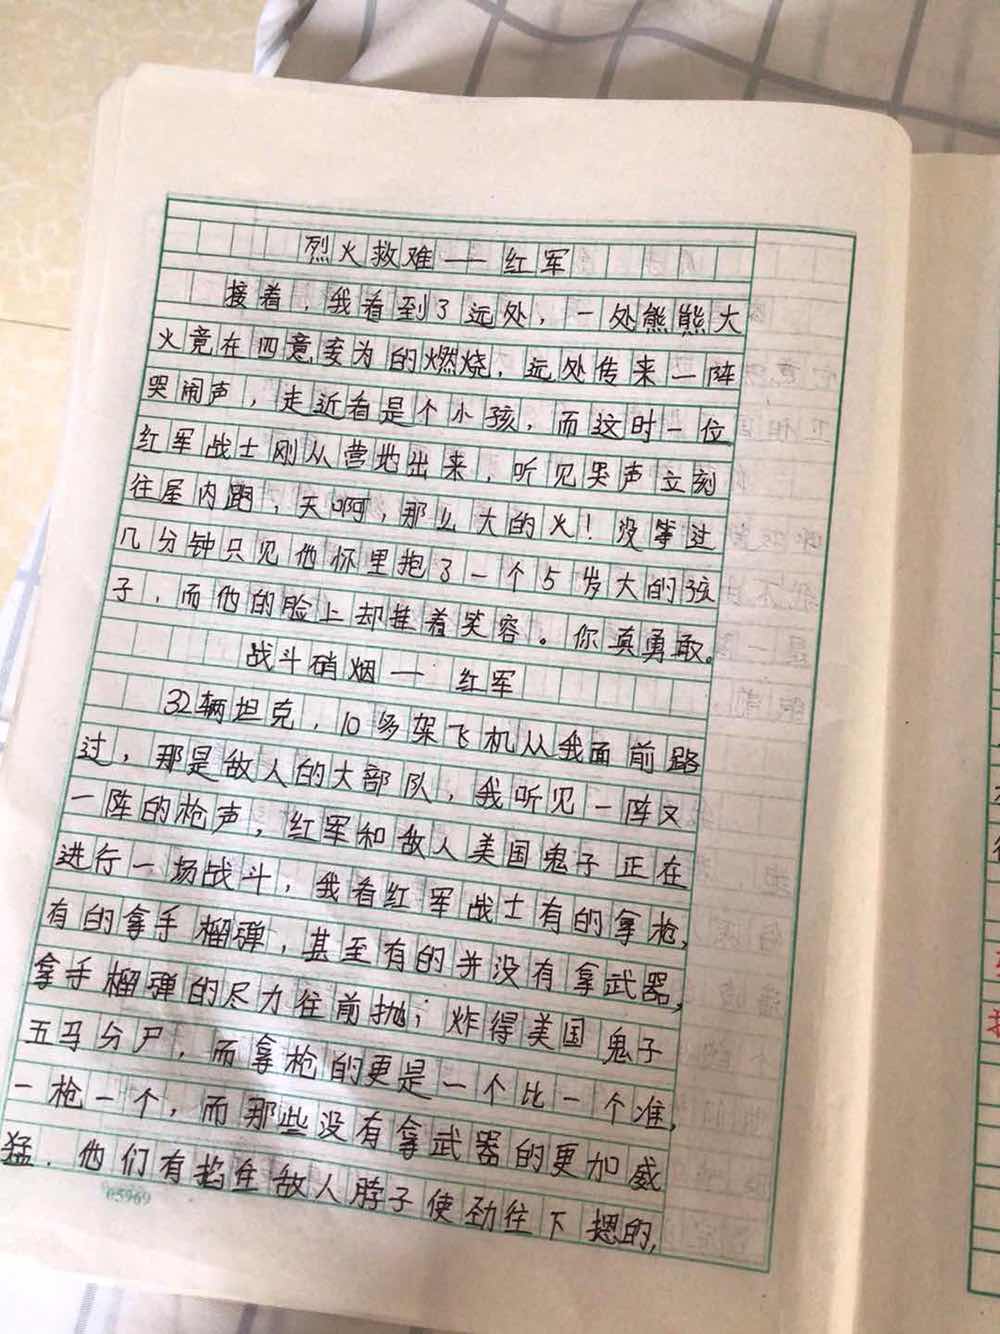 烈火救难——红军
接着，我看到了远处，一处熊熊大
火竟在四意妄为的燃烧，远处传来一阵
哭闹声，走近看是个小孩，而这时一位
红军战士刚从营地出来，听见哭声立刻
往屋内跑，天啊，那么大的火！没等过
几分钟只见他怀里抱了一个5岁大的孩
子，而他的脸上却挂着笑容。你真勇敢。
战斗硝烟——红军
32辆坦克，10多架飞机从我面前路
过，那是敌人的大部队，我听见一阵又
一阵的枪声，红军和敌人美国鬼子正在
进行一场战斗，我看红军战士有的拿枪，
有的拿手榴弹，甚至有的并没有拿武器，
拿手榴弹的尽力往前抛；炸得美国鬼子
五马分尸，而拿枪的更是一个比一个准，
一枪一个，而那些没有拿武器的更加威
猛．他们有掐住敌人脖子使劲往下摁的，
05969